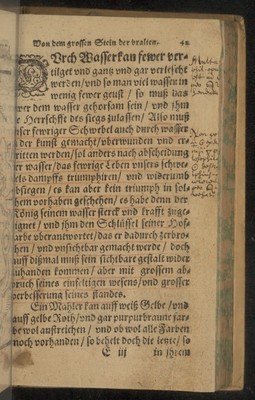 Von dem grossen Stein der vralten. 42
DVrch Wasser kan fewer ver-
tilget vnd gantz vnd gar verlescht
werden / vnd so man viel wasser in
wenig fewer geust / so muß das
wer dem wasser gehorsam sein / vnd ihm
e Herrschfft des siegs zulassen / Also muß
nser fewriger Schwebel auch durch wasser
der kunst gemacht / vberwunden vnd er-
ritten werden / sol anders nach abscheidung
er wasser / das fewrige Leben vnsers schwe-
els dampffs triumphiren / vnd widerumb
bsiegen / es kan aber kein triumph in sol-
hem vorhaben geschehen / es habe denn der
König seinem wasser sterck vnd krafft zuge-
ignet / vnd ihm den Schlüssel seiner Hof-
arbe vberantwortet / das er dadurch zerbro-
hen / vnd vnsichtbar gemacht werde / doch
uff dißmal muß sein sichtbare gestalt wider
uhanden kommen / aber mit grossem ab-
ruch seines einfeltigen wesens / vnd grosser
verbesserung seines standes.
Ein Mahler kan auff weiß Gelbe / vnd
auff gelbe Roth / vnd gar purpurbraune far-
be wol anstreichen / vnd ob wol alle Farben
noch vorhanden / so behelt doch die letzte / so
E iij in ihrem